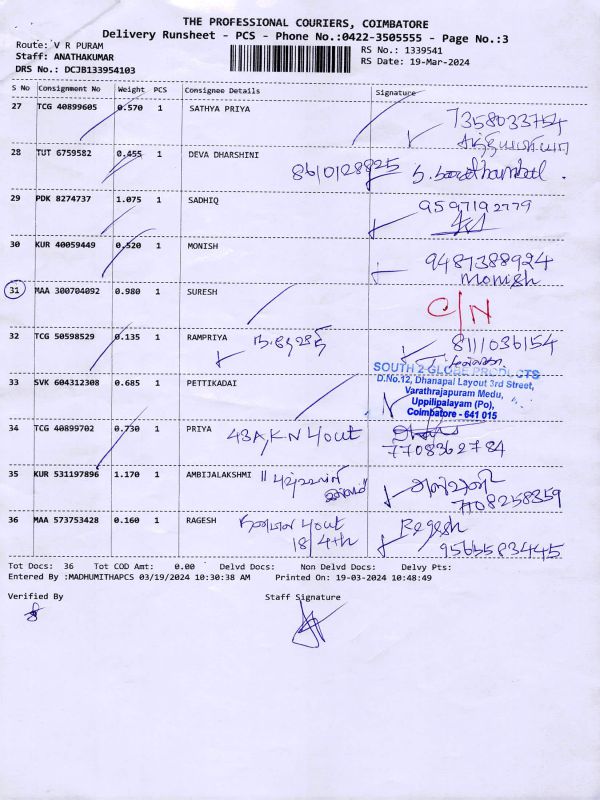 THE PROFESSIONAL COURIERS, COIMBATORE
Delivery Runsheet - PCS - Phone No.:0422-3505555 - Page No.:3
Route: V R PURAM
Staff: ANATHAKUMAR
DRS No.: DCJB133954103
RS No.: 1339541
RS Date: 19-Mar-2024
S No Consignment No Weight PCS Consignee Details Signature
27 TCG 40899605 0.570 1 SATHYA PRIYA 7358033754
28 TUT 6759582 0.455 1 DEVA DHARSHINI 8610128825
29 PDK 8274737 1.075 1 SADHIQ 9597192779
30 KUR 40059449 0.520 1 MONISH 9487388924
Monish
31 MAA 300704092 0.980 1 SURESH C/N
32 TCG 50598529 0.135 1 RAMPRIYA 8111036154
33 SVK 604312308 0.685 1 PETTIKADAI
SOUTH 2 GLOBE PRODUCTS
D.No.12, Dhanapal Layout 3rd Street,
Varathrajapuram Medu,
Uppilipalayam (Po),
Coimbatore - 641 015
34 TCG 40899702 0.730 1 PRIYA 43A, K.N 4/out
7708362784
35 KUR 531197896 1.170 1 AMBIJALAKSHMI
7708258359
36 MAA 573753428 0.160 1 RAGESH 4/out Regesh
18/4th 9565583445
Tot Docs: 36 Tot COD Amt: 0.00 Delvd Docs: Non Delvd Docs: Delvy Pts:
Entered By :MADHUMITHAPCS 03/19/2024 10:30:38 AM Printed On: 19-03-2024 10:48:49
Verified By Staff Signature